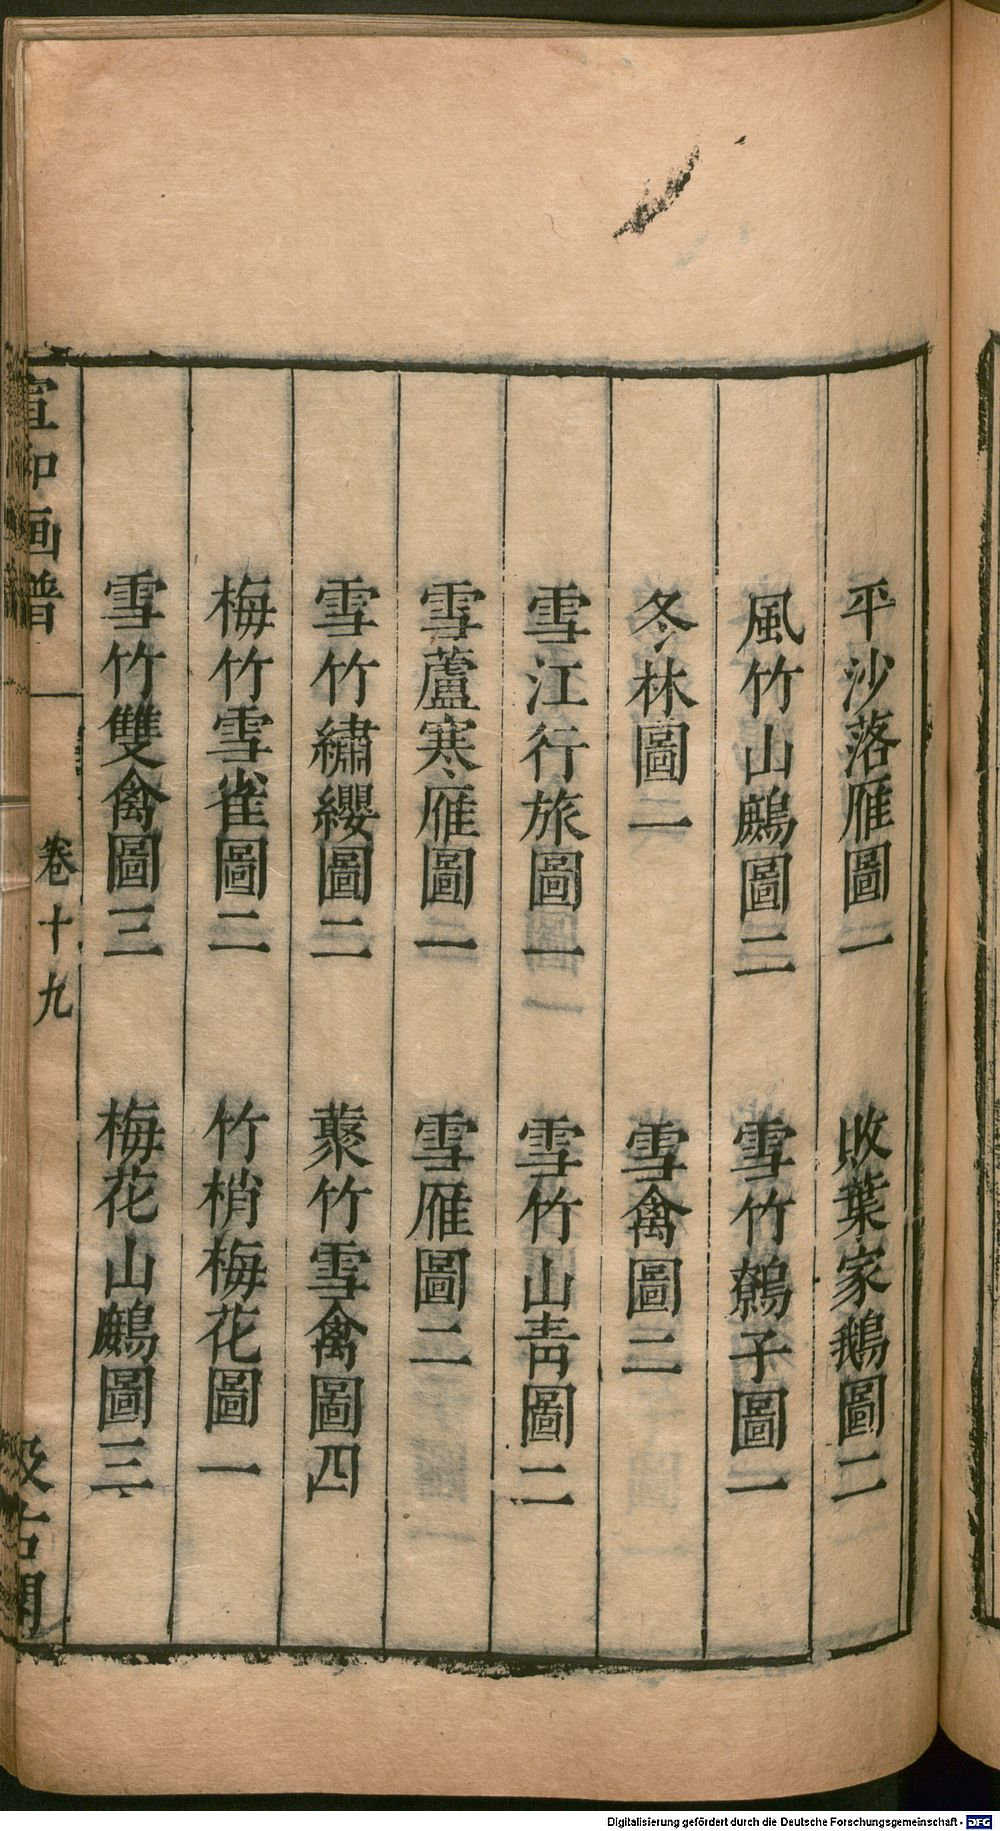 平沙落雁圖一　敗葉家鵝圖二
風竹山鷓圖二　雪竹鷯子圖一
冬林圖二　雪禽圖二
雪江行旅圖一　雪竹山青圖二
雪蘆寒雁圖一　雪雁圖二
雪竹繡纓圖二　藂竹雪禽圖四
梅竹雪雀圖二　竹梢梅花圖一
雪竹雙禽圖三　梅花山鷓圖三
宣和画譜　卷十九　汲古閣
Digitalisierung gefördert durch die Deutsche Forschungsgemeinschaft - DFG